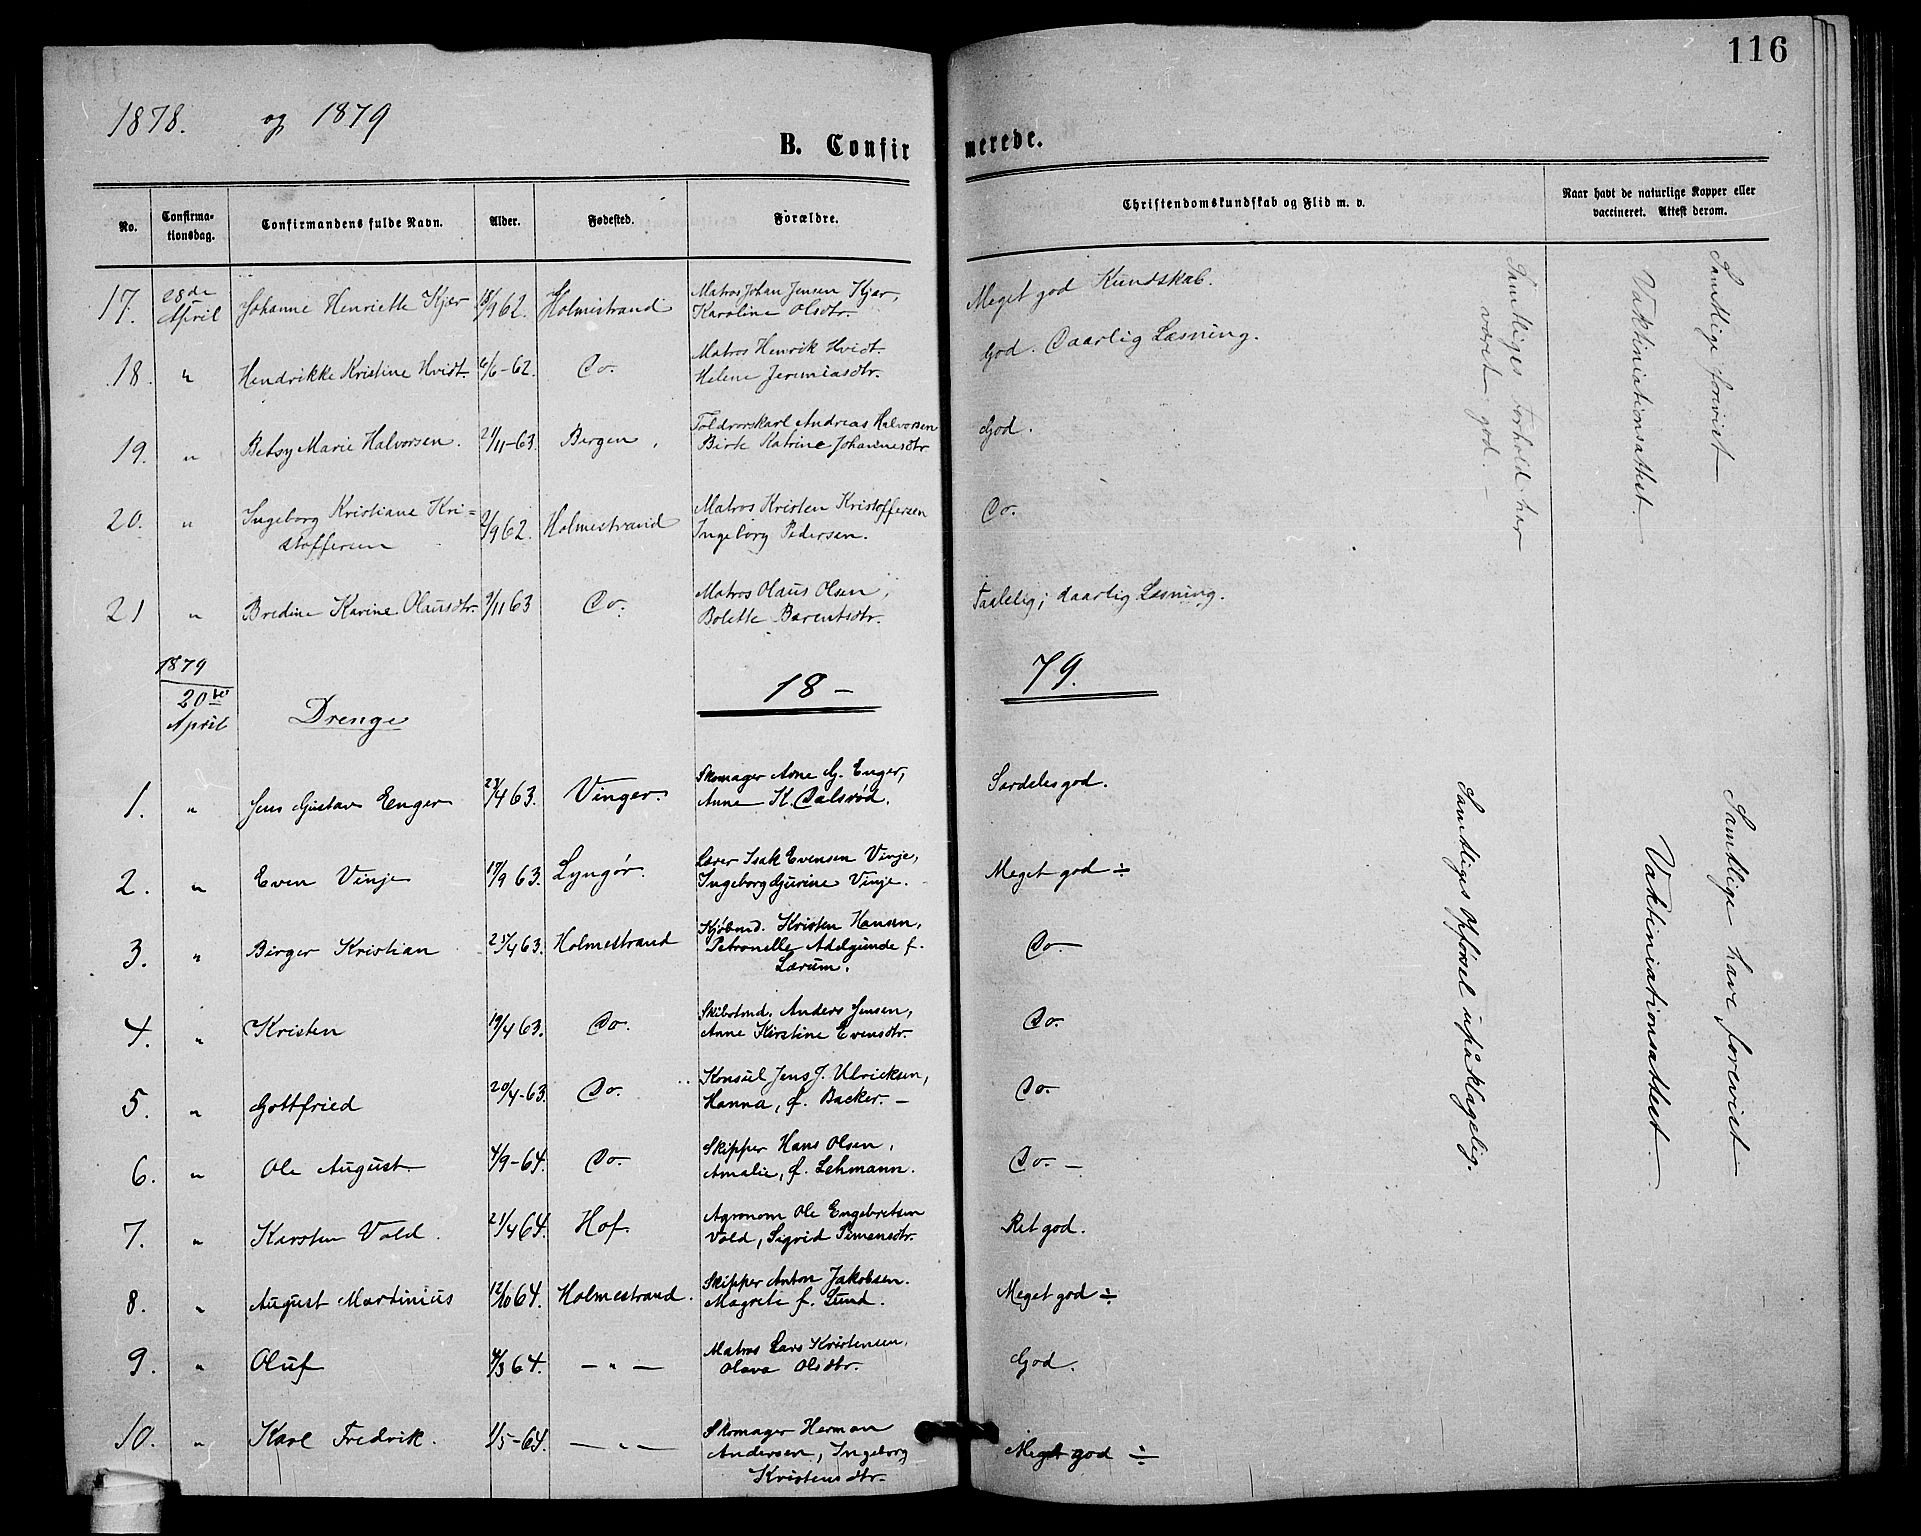 116
1878. og 1879
B. Confirmerede.
No. Confirmationsdag. Confirmandens fulde Navn. Alder. Fødested. Forældre. Christendomskundskab og Flid m. v. Naar havt de naturlige Kopper eller vaccineret. Attest derom.
17. 28de April Johanne Henriette Kjær 18/9 62. Holmestrand Matros Johan Jensen Kjær, Karoline Olsdtr. Meget god Kundskab.
18. " Hendrikke Kristine Hvidt. 6/6-62. Do. Matros Henrik Hvidt. Helene Jeremiasdtr. God. Daarlig Læsning.
19. " Betsy Marie Halvorsen. 21/11-63. Bergen. Toldrorskarl Andreas Halvorsen Birte Katrine Johannesdtr God.
20. " Ingeborg Kristiane Kristoffersen 2/9 62. Holmestrand Matros Kristen Kristoffersen Ingeborg Pedersen. Do.
21 " Bredine Karine Olausdtr. 9/11 63 Do. Matros Olaus Olsen, Bolette Barentsdtr. Taalelig; daarlig Læsning.
Samtliges Forhold har været god. –
Samtlige forevist Vaktiniationsattest.
1879
20de April Drenge 18 – 79.
1. " Jens Gustav Enger 23/4 63. Vinger. Skomager Arne G. Enger, Anne K. Dalsrød. Særdeles god.
2. " Even Vinje 17/9 63. Lyngør. Lærer Isak Evensen Vinje, Ingeborg Gurine Vinje. Meget god ÷
3. " Birger Kristian 25/4 63. Holmestrand Kjøbmd. Kristen Hansen, Petronelle Adelgunde f. Lærum. Do –
4. " Kristen 19/4 63. Do. Skibstmd. Anders Jensen, Anne Kirstine Evensdtr. Do.
5. " Gottfried 20/4-63. Do. Konsul Jens J. Ulricksen, Hanna, f. Backer. – Do –
6. " Ole August. 4/9-64. Do. Skipper Hans Olsen, Amalie, f. Lehmann. Do. –
7. " Karsten Vold. 21/4 64. Hof. Agronom Ole Engebretsen Vold, Sigrid Simensdtr. Ret god.
8. " August Martinius 12/10 64. Holmestrand. Skipper Anton Jakobsen. Magrete f. Lund. Meget god ÷
9. " Oluf 4/3 64. – " – Matros Lars Kristensen, Olava Olsdtr. God.
10. " Karl Fredrik. 1/5-64. – " – Skomager Herman Andersen, Ingeborg Kristensdtr. Meget god ÷
Samtliges Opførsel upåklagelig.
Samtlige have forevist Vaktiniationsattest.